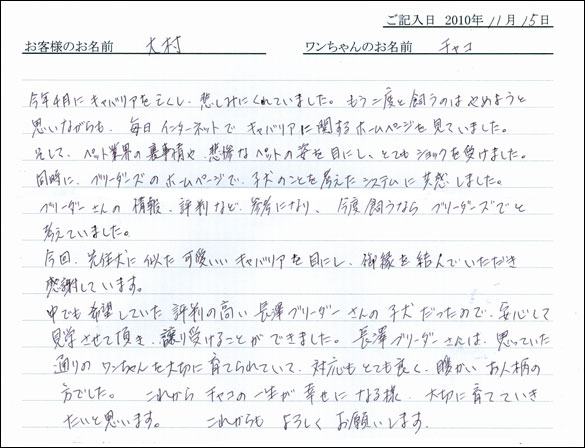 ご記入日 2010年 11月 15日
お客様のお名前 大村 ワンちゃんのお名前 チャコ
今年4月にキャバリアを亡くし、悲しみにくれていました。もう二度と飼うのはやめようと
思いながらも、毎日インターネットでキャバリアに関するホームページを見ていました。
そして、ペット業界の裏事情や、悲惨なペットの姿を目にし、とてもショックを受けました。
同時に、ブリーダーズのホームページで、子犬のことを考えたシステムに共感しました。
ブリーダーさんの情報、評判など、参考になり、今度飼うならブリーダーズでと
考えていました。
今回、先住犬に似た可愛いいキャバリアを目にし、御縁を結んでいただき
感謝しています。
中でも希望していた評判の高い長澤ブリーダーさんの子犬だったので、安心して
見学させて頂き、譲り受けることができました。長澤ブリーダーさんは、思っていた
通りのワンちゃんを大切に育てられていて、対応もとても良く、暖かいお人柄の
方でした。 これからチャコの一生が幸せになる様、大切に育てていき
たいと思います。 これからもよろしくお願いします。